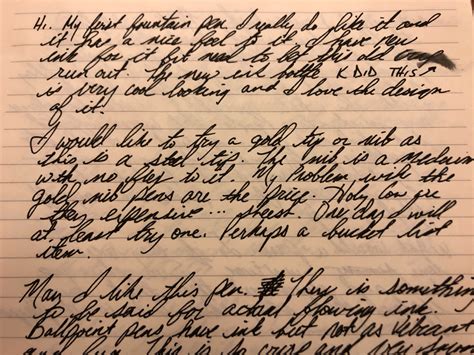 Hi. My first fountain pen. I really do like it and
it has a nice feel to it. I have new
ink for it but need to let this old
run out. The new ink bottle K DID THIS
is very cool looking and I love the design
of it.
I would like to try a gold tip or nib as
this is a steel tip. The nib is a medium
with no flex to it. My Problem with the
gold nib pens are the price. Holy cow are
they expensive ... sheesh. One day I will
at least try one. Perhaps a bucket list
item.
Man I like this pen. There is something
to be said for actual flowing ink.
Ballpoint pens have ink but not as vibrant
and fun. This is so crisp and very